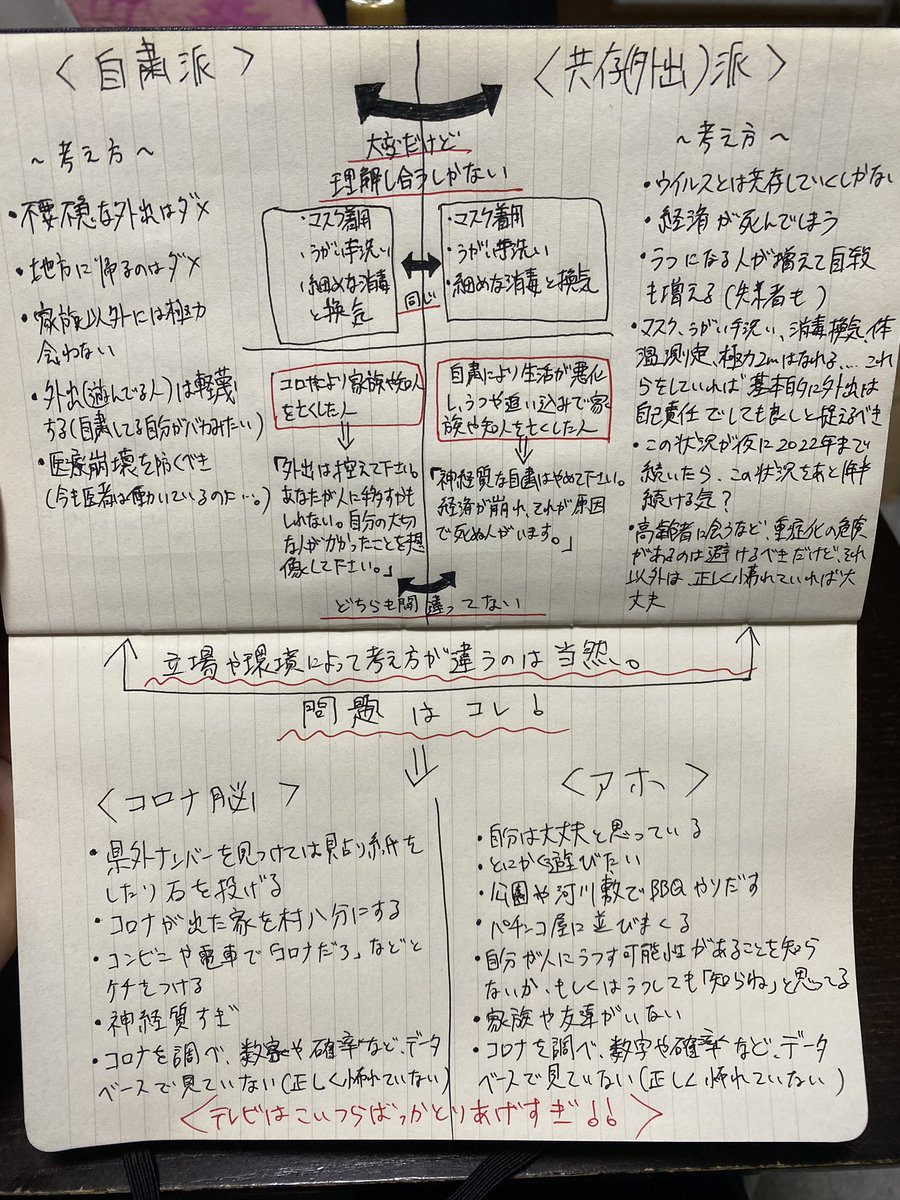 〈自粛派〉
〜考え方〜
・不要不急な外出はダメ
・地方に帰るのはダメ
・家族以外には極力
会わない
・外出(遊んでる人)は軽蔑
する(自粛してる自分がバカみたい)
・医療崩壊を防ぐべき
(今も医者は働いているのに…。)
大変だけど
理解し合うしかない
・マスク着用
・うがい手洗い
・細めな消毒
と換気
同じ
・マスク着用
・うがい手洗い
・細めな消毒と換気
コロナにより家族や知人
を亡くした人
「外出は控えて下さい。
あなたが人に移すかも
しれない。自分の大切
な人がかかったことを想
像して下さい。」
自粛により生活が悪化
し、うつや追い込みで家
族や知人を亡くした人
「神経質な自粛はやめて下さい。
経済が崩れ、それが原因
で死ぬ人がいます。」
どちらも間違ってない
〈共存(外出)派〉
〜考え方〜
・ウイルスとは共存していくしかない
・経済が死んでしまう
・うつになる人が増えて自殺
も増える(失業者も)
・マスク、うがい手洗い、消毒換気、体
温測定、極力2mはなれる…これ
らをしていれば基本的に外出は
自己責任でしても良しと捉えるべき
・この状況が夜に2022年まで
続いたら、この状況をあと何年
続ける気?
・高齢者に会うなど、重症化の危険
があるのは避けるべきだけど、それ
以外は、正しく怖れていれば大
丈夫
立場や環境によって考え方が違うのは当然。
問題はコレ!
〈コロナ脳〉
・県外ナンバーを見つけては貼り紙を
したり石を投げる
・コロナが出た家を村八分にする
・コンビニや電車で「コロナだろ」などと
ケチをつける
・神経質すぎ
・コロナを調べ、数字や確率など、データ
ベースで見ていない(正しく怖れていない)
〈アホ〉
・自分は大丈夫と思っている
・とにかく遊びたい
・公園や河川敷でBBQやりだす
・パチンコ屋に並びまくる
・自分が人にうつす可能性があることを知ら
ないか、もしくはうつしても「知らね」と思ってる
・家族や友達がいない
・コロナを調べ、数字や確率など、データ
ベースで見ていない(正しく怖れていない)
〈テレビはこいつらばっかとりあげすぎ!!〉